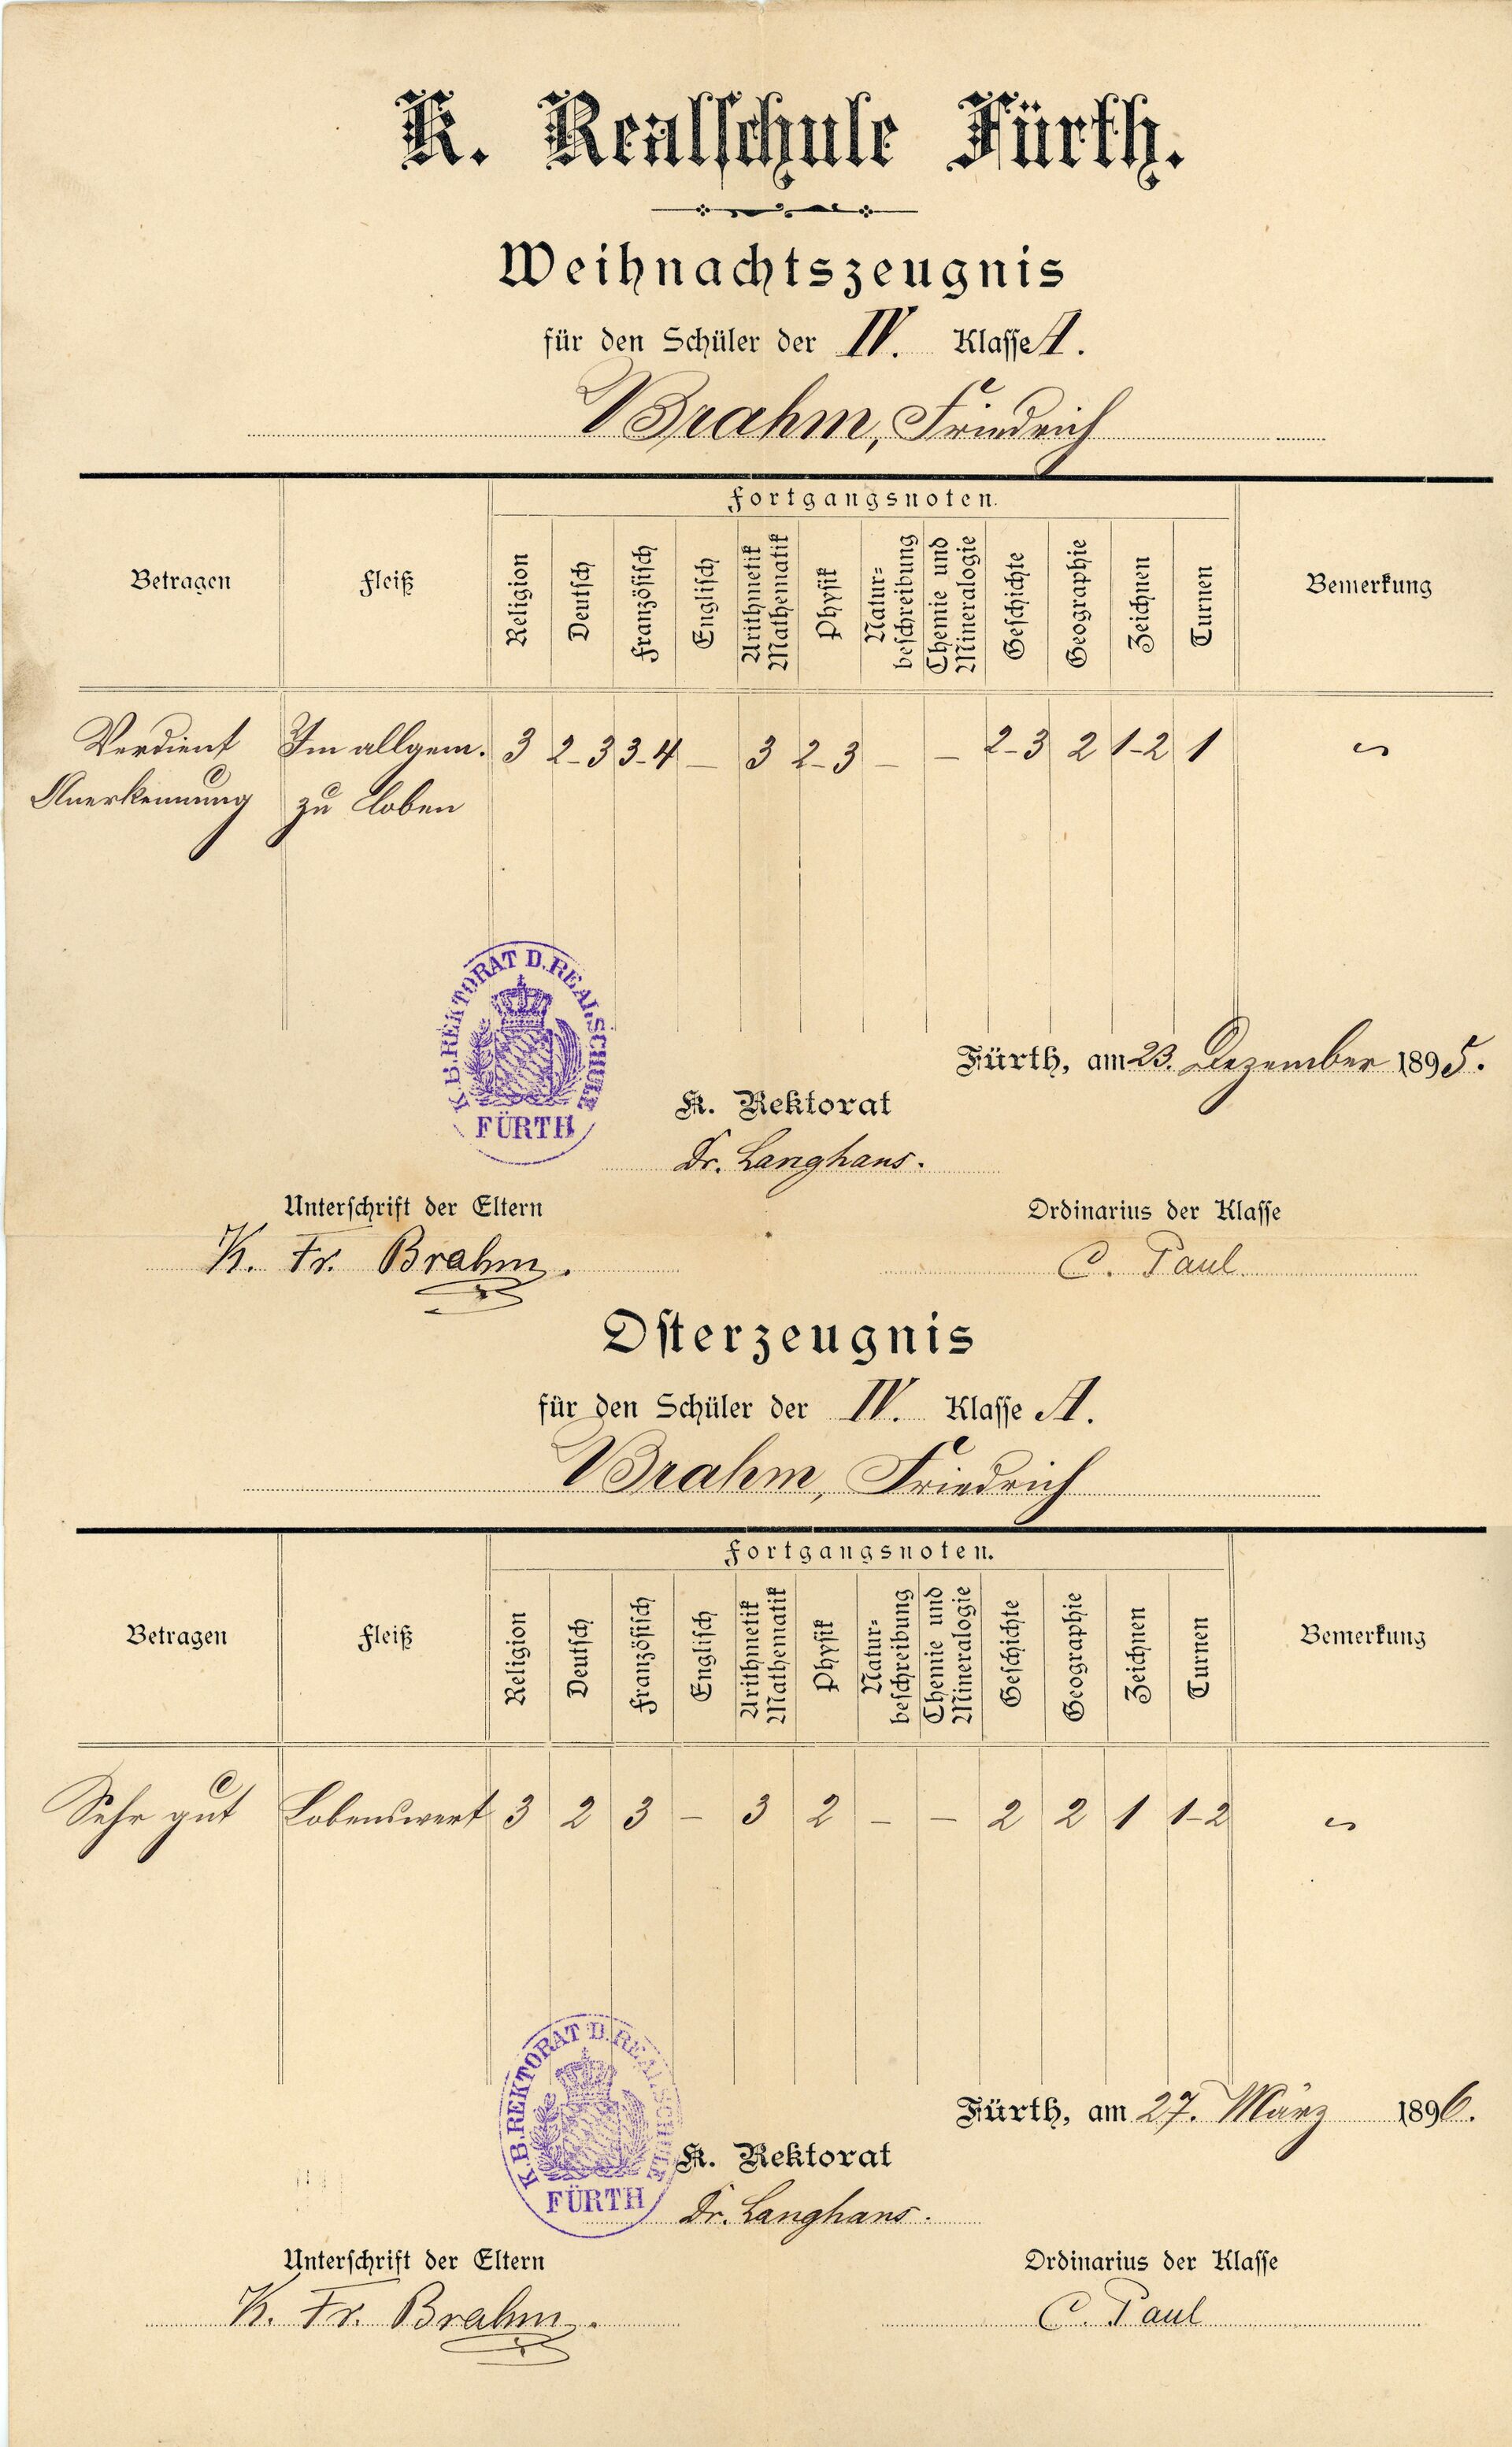 K. Realschule Fürth.
Weihnachtszeugnis
für den Schüler der IV. Klasse A.
Brahm, Friedrich
Fortgangsnoten.
Betragen Fleiß Religion Deutsch Französisch Englisch Arithmetik Mathematik Physik Natur-beschreibung Chemie und Mineralogie Geschichte Geographie Zeichnen Turnen Bemerkung
Verdient Im allgem. 3 2-3 3-4 – 3 2-3 – – 2-3 2 1-2 1
Anerkennung zu loben
K.B. REKTORAT D. REALSCHULE
FÜRTH
Fürth, am 23. Dezember 1895.
K. Rektorat
Dr. Langhans.
Unterschrift der Eltern Ordinarius der Klasse
K. Fr. Brahm. C. Paul.
Osterzeugnis
für den Schüler der IV. Klasse A.
Brahm, Friedrich
Fortgangsnoten.
Betragen Fleiß Religion Deutsch Französisch Englisch Arithmetik Mathematik Physik Natur-beschreibung Chemie und Mineralogie Geschichte Geographie Zeichnen Turnen Bemerkung
Sehr gut Lobenswert 3 2 3 – 3 2 – – 2 2 1 1-2
K.B. REKTORAT D. REALSCHULE
FÜRTH
Fürth, am 27. März 1896.
K. Rektorat
Dr. Langhans.
Unterschrift der Eltern Ordinarius der Klasse
K. Fr. Brahm. C. Paul